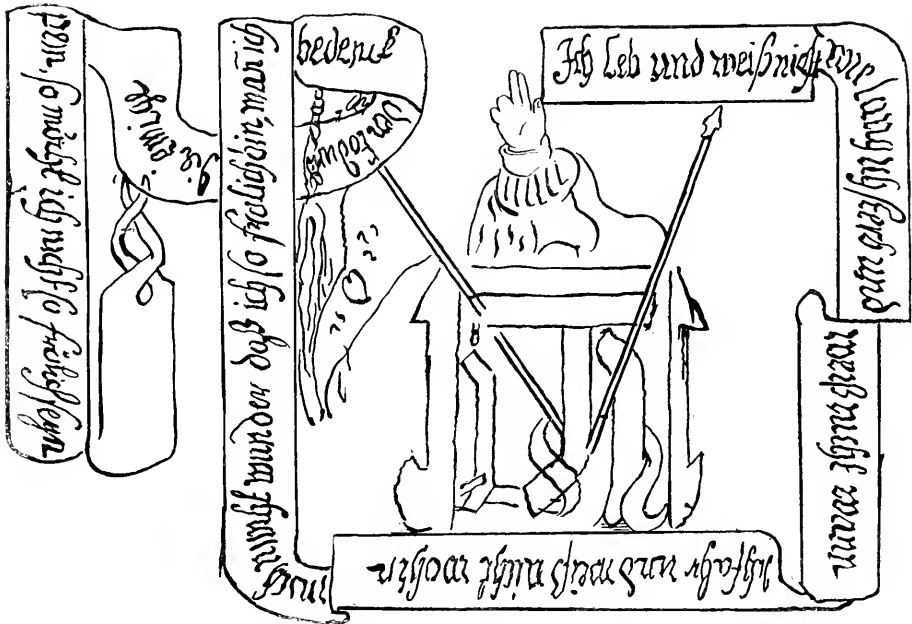 Ich Leb und weiß nicht
wie lang ich sterb und
weiß nicht wann
ich fahr und weiß nicht wohin
mich nimbt wunder daß ich so frölich bin wan ich
bedenck
den todt und
die ewige
pein, so möcht ich nicht so frölich seyn